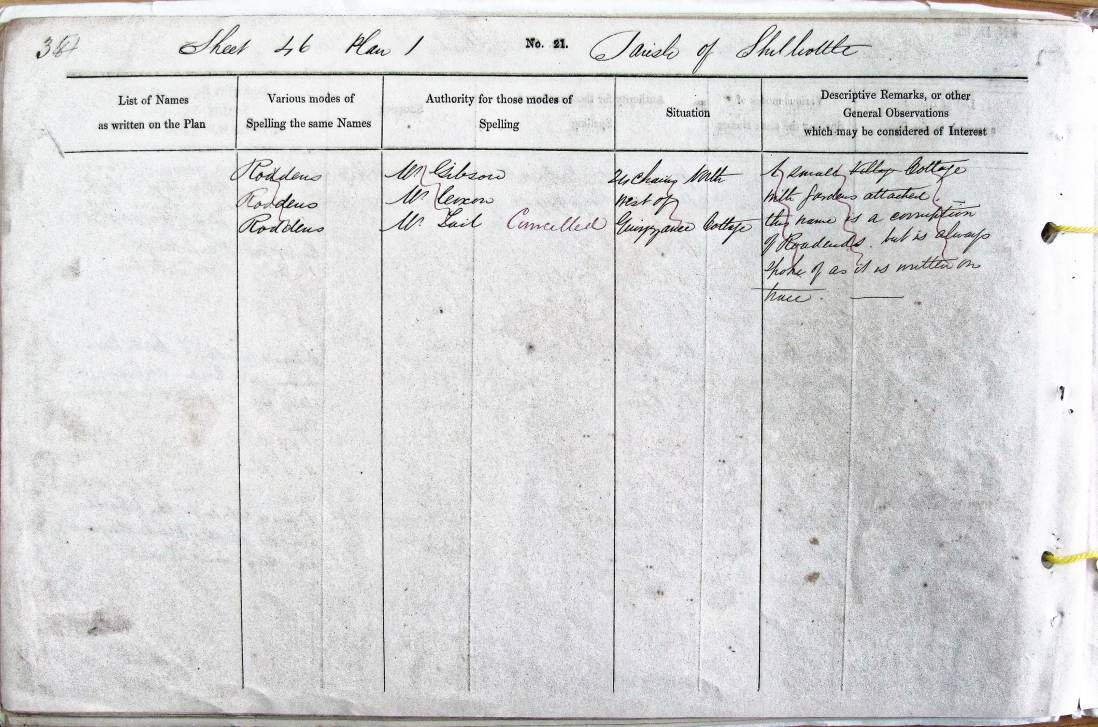 Sheet 46 Plan 1 No. 21. Parish of Shilbottle
List of Names as written on the Plan
Various modes of Spelling the same Names
Authority for those modes of Spelling
Situation
Descriptive Remarks, or other General Observations which may be considered of Interest
Roddens Mr Gibson Chains North A small Cottage
Roddens Mr west of with gardens attached
Roddens Mr Tait Cancelled Guyzance Cottage this name is a corruption
of Roadends. but is always
spoke of as it is written on
trace.